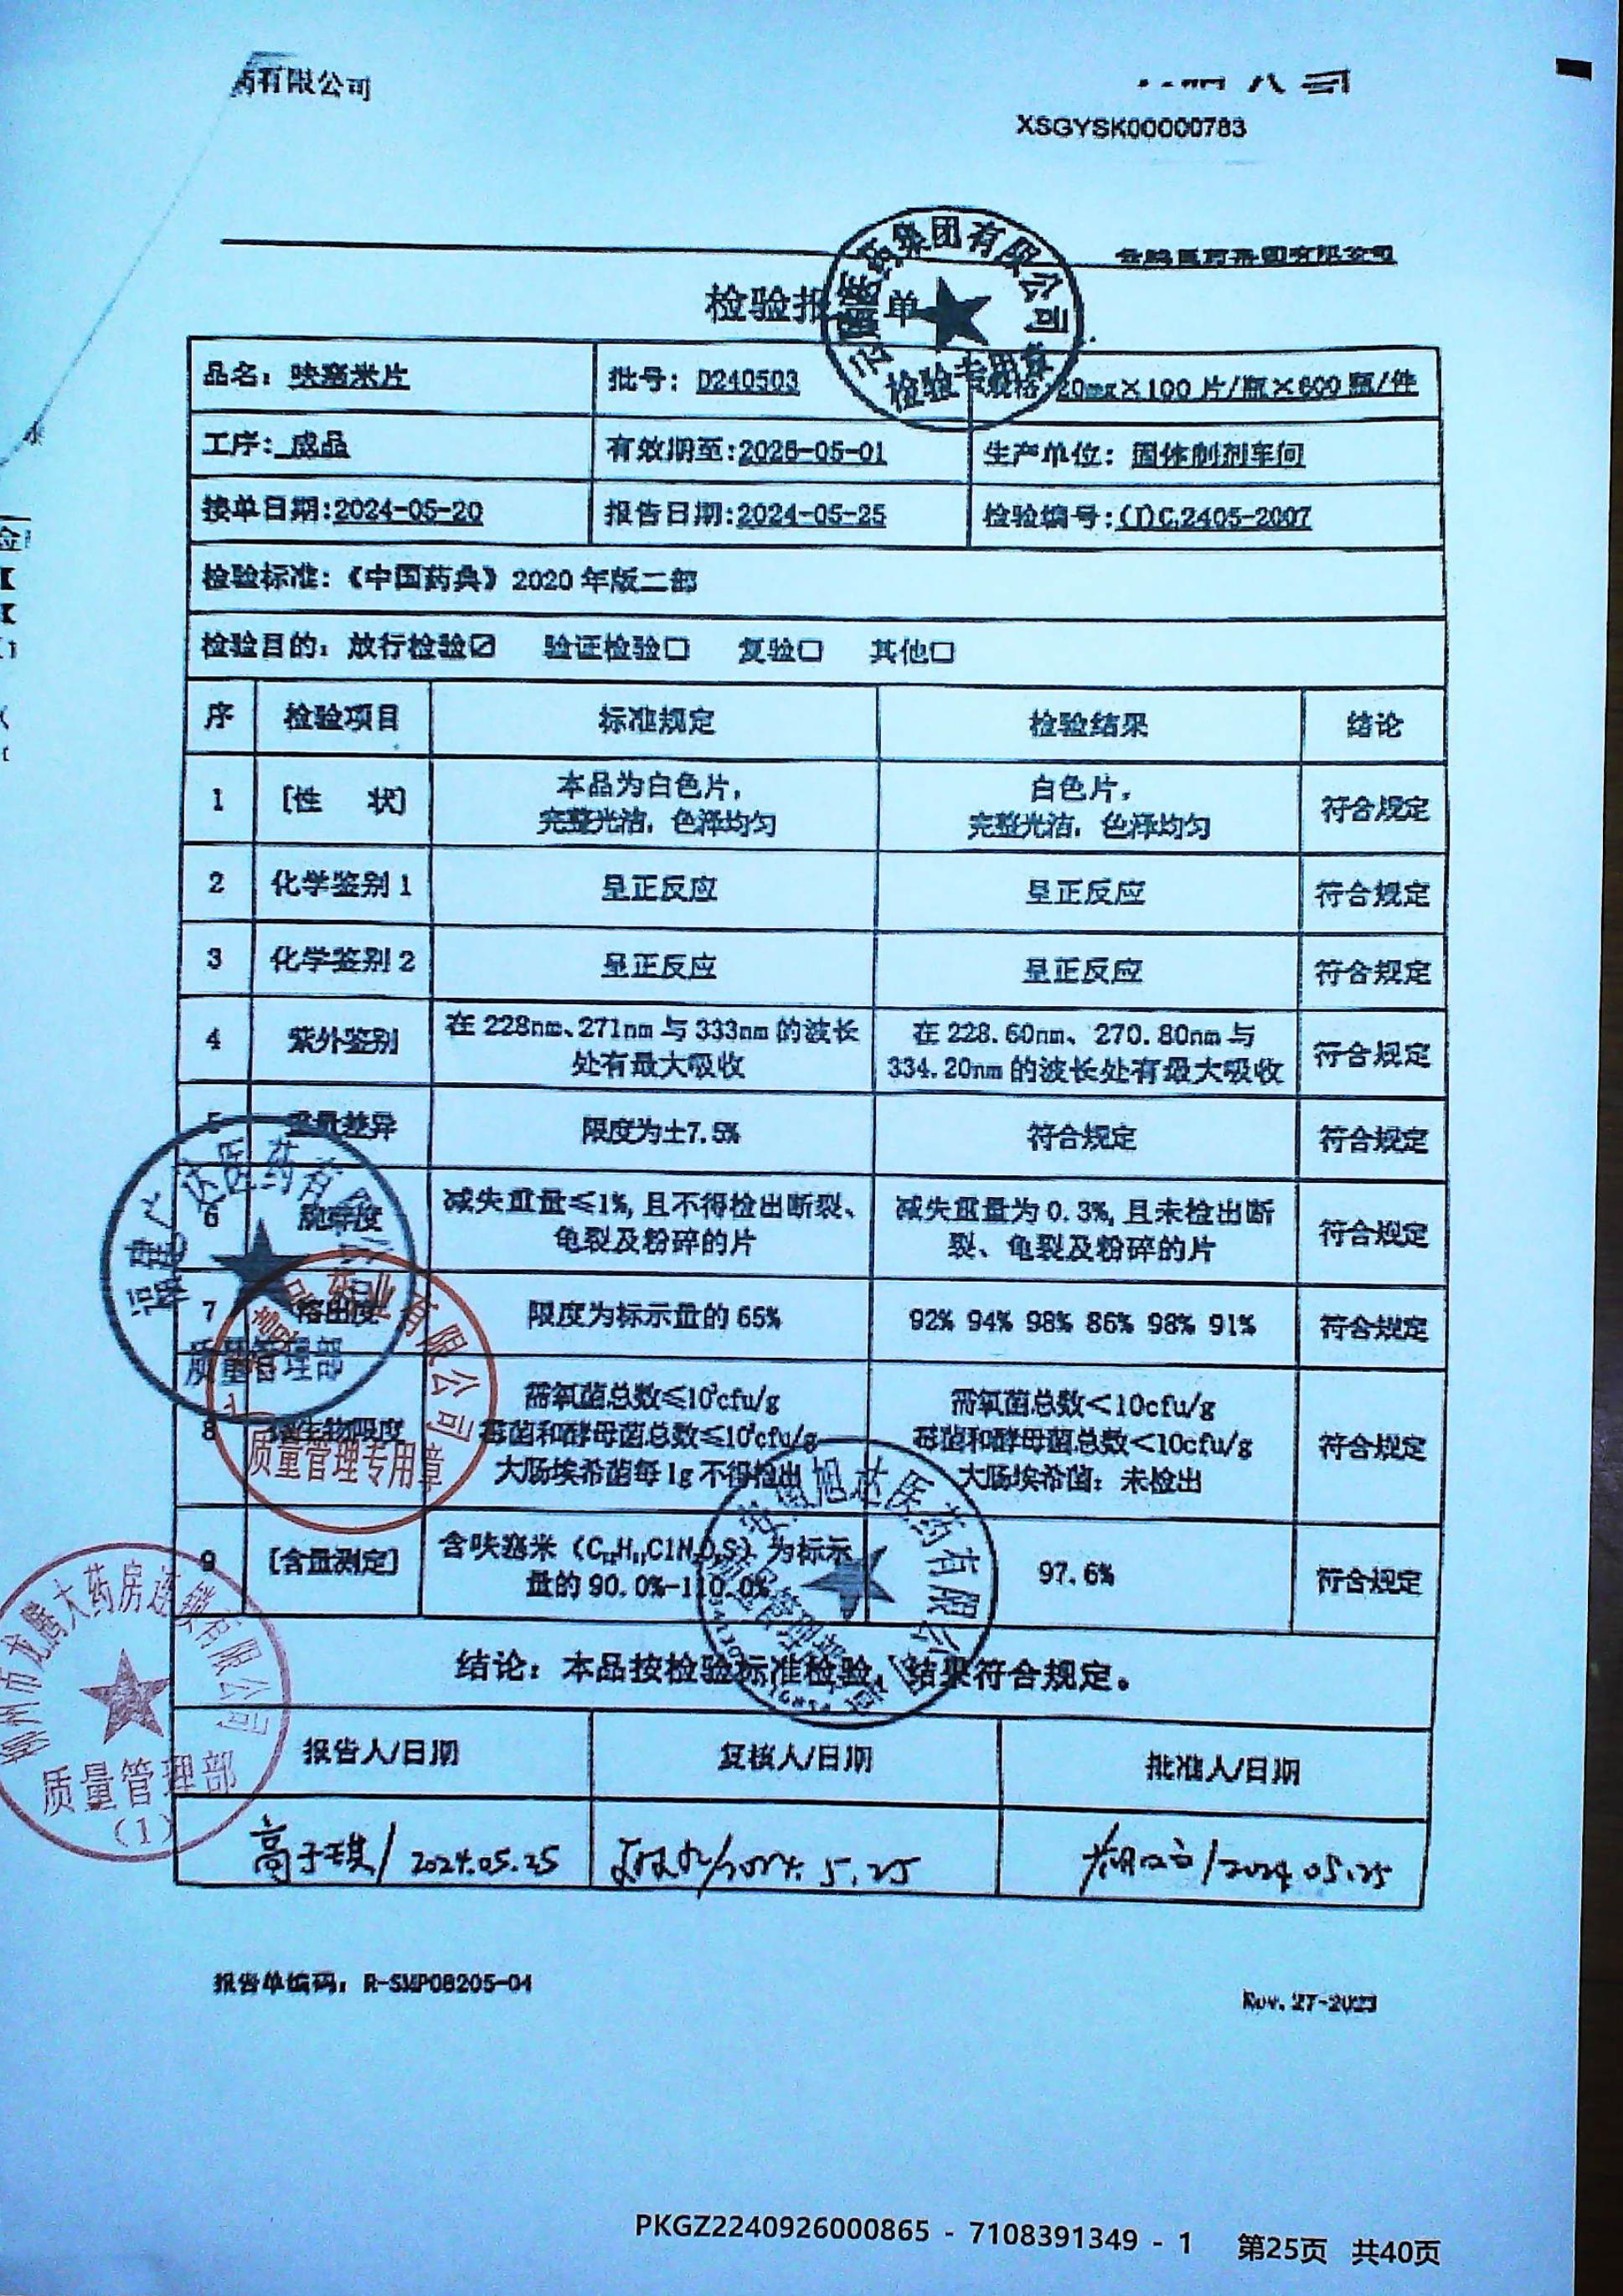 药有限公司
XSGYSK00000783
检验报 单
品名：呋塞米片
批号：D240503
规格：20mg×100片/瓶×600瓶/件
工序：成品
有效期至:2026-05-01
生产单位：固体制剂车间
接单日期:2024-05-20
报告日期:2024-05-25
检验编号:(I)C2405-2007
检验标准：《中国药典》2020年版二部
检验目的：放行检验☑ 验证检验□ 复验□ 其他□
序 检验项目 标准规定 检验结果 结论
1 [性 状] 本品为白色片，完整光洁，色泽均匀 白色片，完整光洁，色泽均匀 符合规定
2 化学鉴别1 呈正反应 呈正反应 符合规定
3 化学鉴别2 呈正反应 呈正反应 符合规定
4 紫外鉴别 在228nm、271nm与333nm的波长处有最大吸收 在228.60nm、270.80nm与334.20nm的波长处有最大吸收 符合规定
5 重量差异 限度为±7.5% 符合规定 符合规定
6 脆碎度 减失重量≤1%，且不得检出断裂、龟裂及粉碎的片 减失重量为0.3%，且未检出断裂、龟裂及粉碎的片 符合规定
7 溶出度 限度为标示量的65% 92% 94% 98% 86% 98% 91% 符合规定
8 微生物限度 需氧菌总数≤10³cfu/g 需氧菌总数<10cfu/g 符合规定
霉菌和酵母菌总数≤10²cfu/g 霉菌和酵母菌总数<10cfu/g
大肠埃希菌每1g不得检出 大肠埃希菌：未检出
9 [含量测定] 含呋塞米 为标示量的90.0%-110.0% 97.6% 符合规定
结论：本品按检验标准检验，结果符合规定。
报告人/日期 复核人/日期 批准人/日期
高于琪/2024.05.25
2024.5.25
2024.05.25
报告单编码：R-SMP08205-04
Nov. 27-2023
医药集团有限公司
检验专用章
达医药有限公司
质量管理部
药业有限公司
质量管理专用章
安徽旭达医药有限公司
质量管理部
柳州市龙腾大药房连锁有限公司
质量管理部
（1）
PKGZ2240926000865 - 7108391349 - 1 第25页 共40页